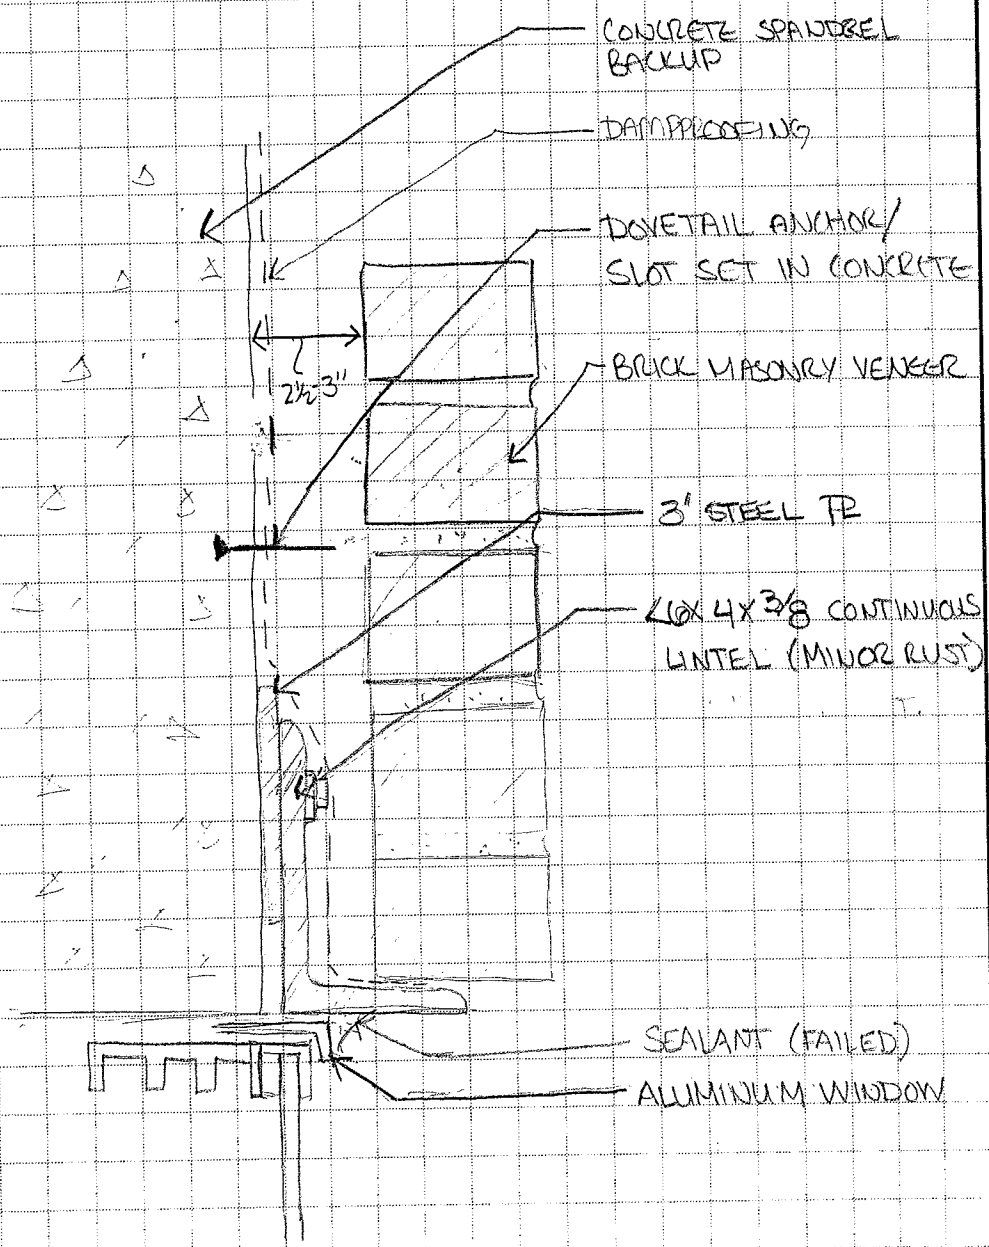 CONCRETE SPANDREL
BACKUP
DAMPPROOFING
DOVETAIL ANCHOR/
SLOT SET IN CONCRETE
2½-3"
BRICK MASONRY VENEER
3" STEEL PL
L6X 4X 3/8 CONTINUOUS
LINTEL (MINOR RUST)
SEALANT (FAILED)
ALUMINUM WINDOW